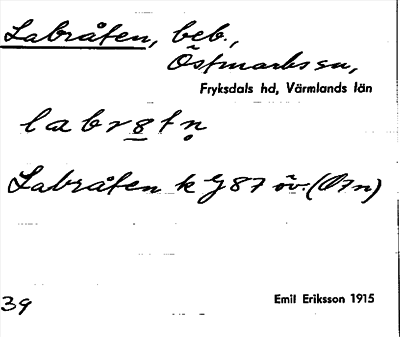 Labråten, beb.,
Östmarks sn,
Fryksdals hd, Värmlands län
labr8tn
Labråten k GJ 87 öv. (Ö7n)
39
Emil Eriksson 1915